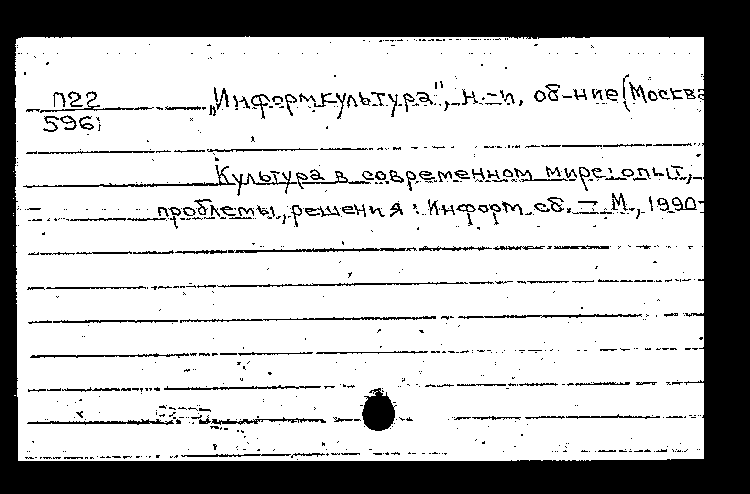 П22 „Информкультура", н.-и, об-ние (Москва
596
Культура в современном мире: опыт,
проблемы, решения: Информ. сб. — М., 1990-